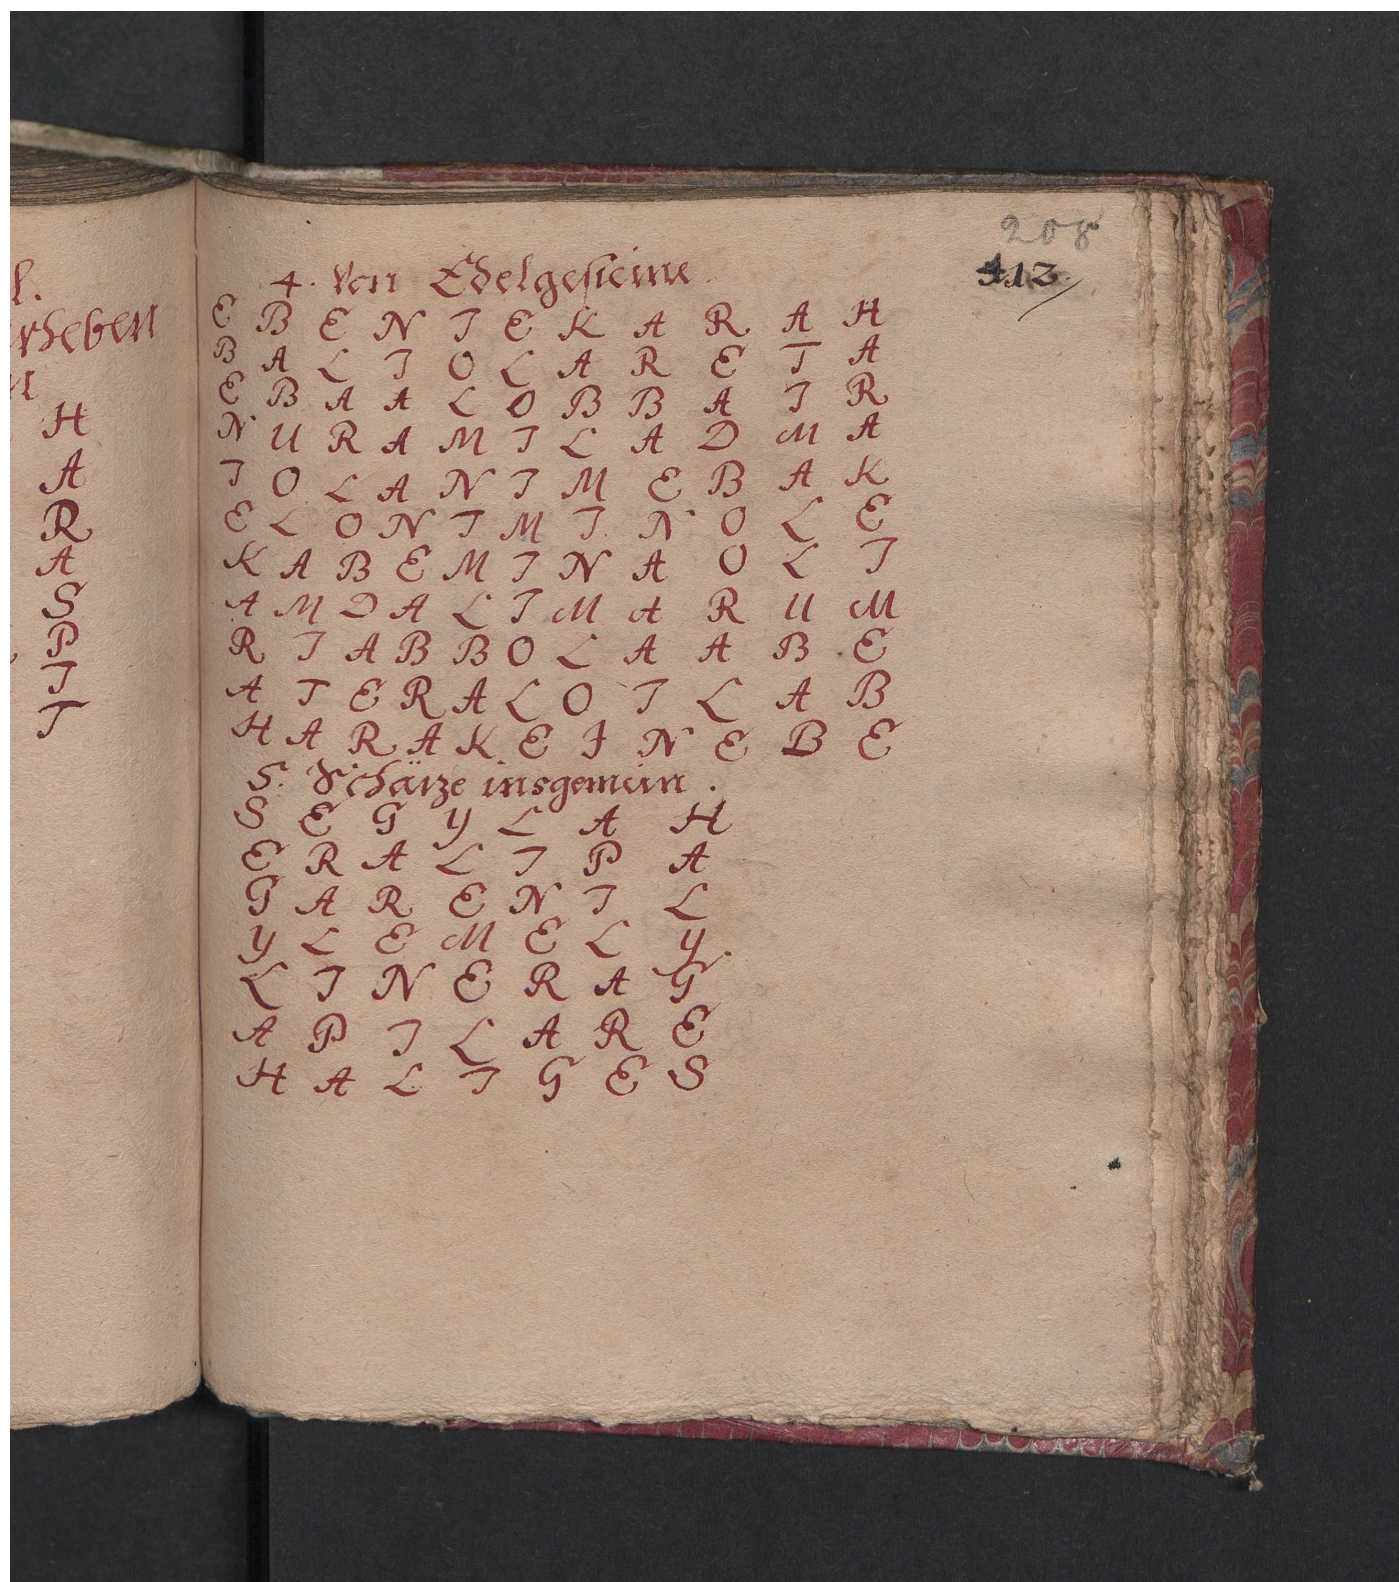 l.
rheben
n
H
A
R
A
S
P
I
T
208
413
4. Von Edelgesteine
E B E N I E K A R A H
B A L I O L A R E T A
E B A A L O B B A I R
N U R A M I L A D M A
I O L A N I M E B A K
E L O N I M I N O L E
K A B E M I N A O L I
A M D A L I M A R U M
R I A B B O L A A B E
A T E R A L O I L A B
H A R A K E I N E B E
5. Schätze insgemein.
S E G Y L A H
E R A L I P A
G A R E N I L
Y L E M E L Y.
L I N E R A G
A P I L A R E
H A L I G E S